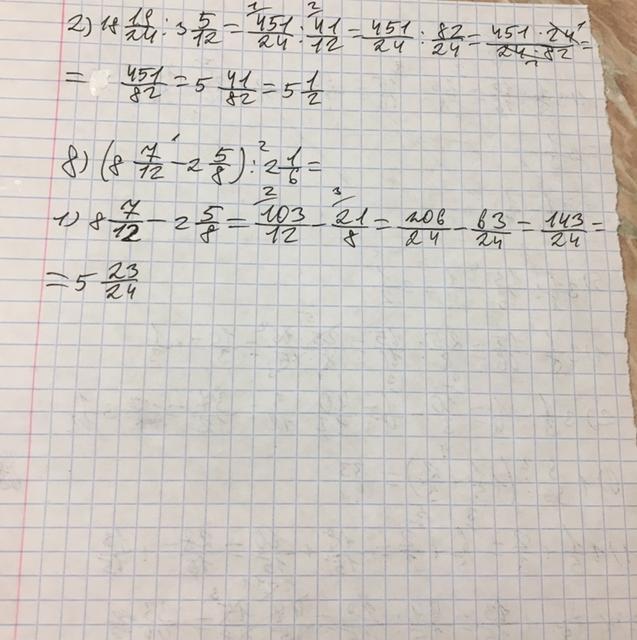 2) 18 19/24 : 3 5/12 = 451/24 : 41/12 = 451/24 : 82/24 = 451 · 24/24 · 82 =
= 451/82 = 5 41/82 = 5 1/2
8) (8 7/12 - 2 5/8) : 2 1/6 =
1) 8 7/12 - 2 5/8 = 103/12 - 21/8 = 206/24 - 63/24 = 143/24 =
= 5 23/24